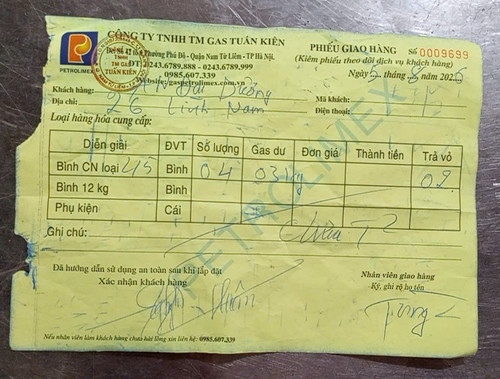 PETROLIMEX
CÔNG TY TNHH TM GAS TUẤN KIÊN
Phường Phú Đô - Quận Nam Từ Liêm - TP Hà Nội.
ĐT: 0243.6789.888 - 0243.6789.999
0985.607.339
gaspetrolimex.com.vn
PHIẾU GIAO HÀNG Số 0009699
(Kiêm phiếu theo dõi dịch vụ khách hàng)
Ngày 5 năm 202
Khách hàng: Đại Dương Mã khách:
Địa chỉ: 26 Lĩnh Nam Điện thoại:
Loại hàng hóa cung cấp:
Diễn giải ĐVT Số lượng Gas dư Đơn giá Thành tiền Trả vỏ
Bình CN loại 45 Bình 04 03 kg 02
Bình 12 kg Bình
Phụ kiện Cái
Ghi chú: Chiều T2
Đã hướng dẫn sử dụng an toàn sau khi lắp đặt
Xác nhận khách hàng
Nhân viên giao hàng
Ký, ghi rõ họ tên
Nếu nhân viên làm khách hàng chưa hài lòng xin liên hệ: 0985.607.339
PETROLIMEX